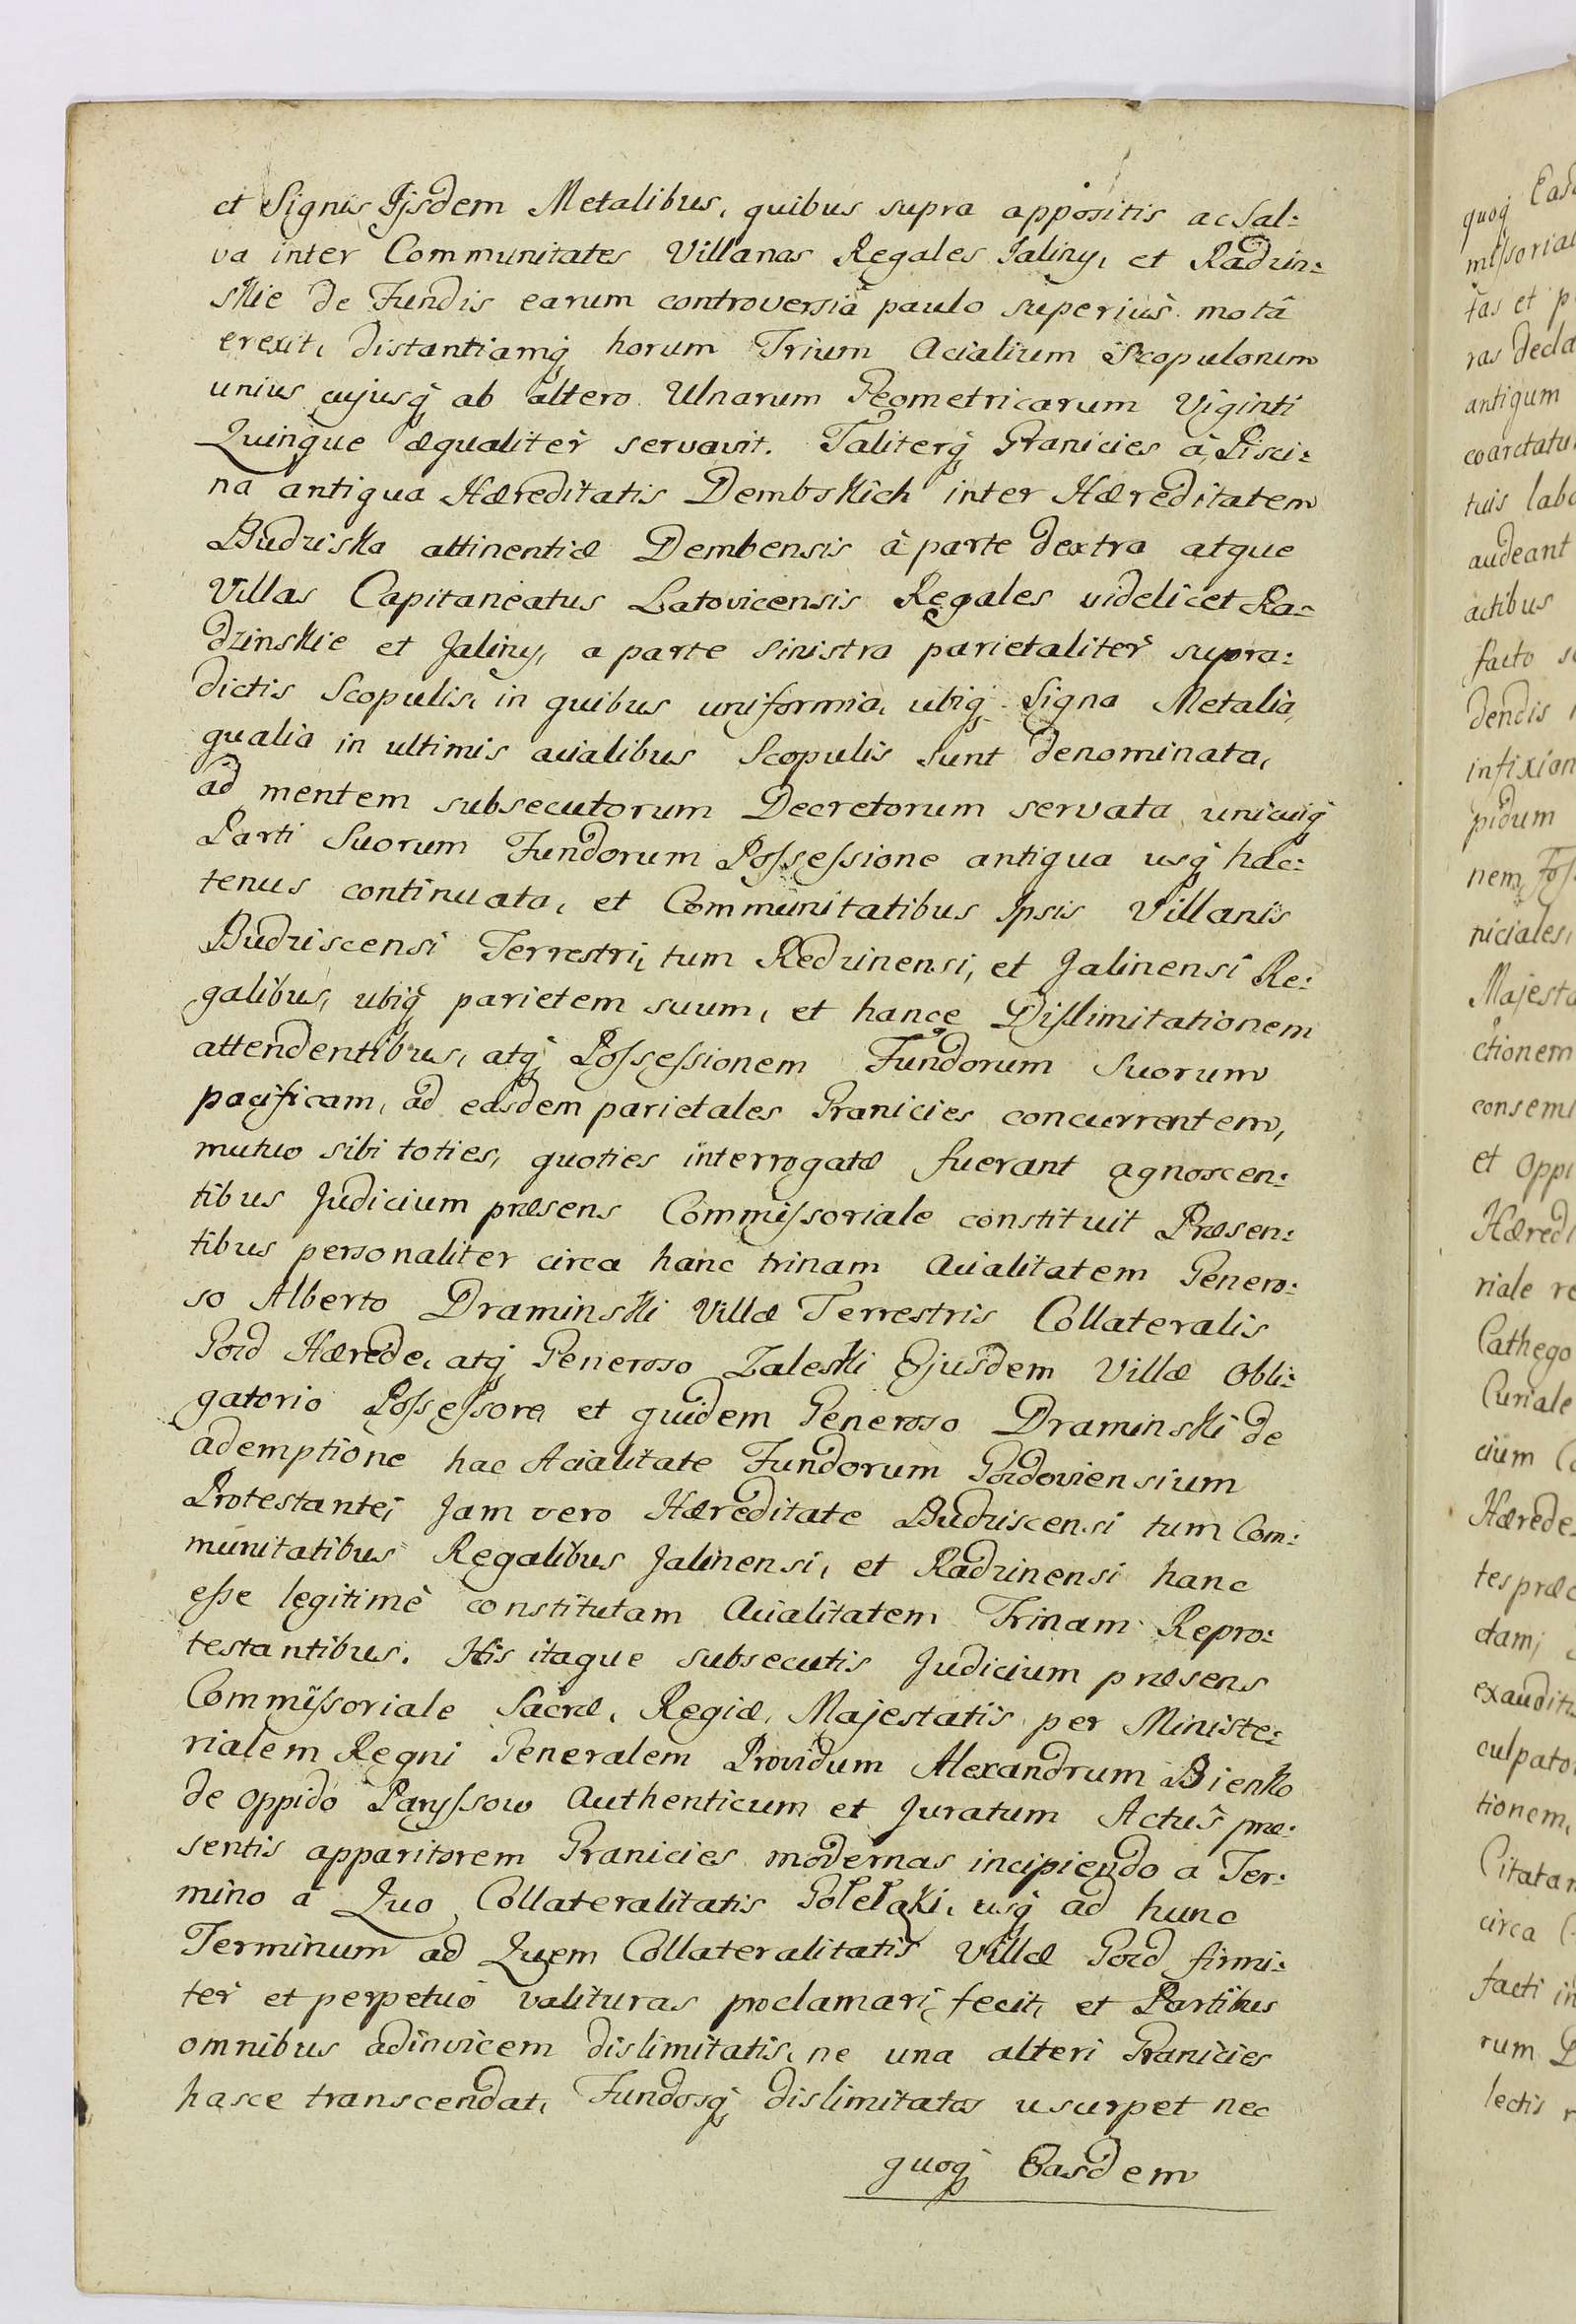 et Signis Ijsdem Metalibus, quibus supra appositis ac Sal:
va inter Communitates Villanas Regales Jaliny, et Radzin:
skie de Fundis earum controversiâ paulo superius motâ
erexit, distantiamq; horum Trium Acialium Scopulorum
unius cujusq; ab altero Ulnarum Geometricarum Viginti
Quinque æqualiter servavit. Taliterq; Granicies à Pisci:
na antiqua Hæreditatis Dembskich inter Hæreditatem
Budziska attinentiæ Dembensis à parte dextra atque
Villas Capitaneatus Latovicensis Regales videlicet Ra:
dzinskie et Jaliny, a parte sinistra parietaliter supra:
dictis Scopulis, in quibus uniformia, ubiq; Signa Metalia,
qualia in ultimis acialibus Scopulis sunt denominata,
ad mentem subsecutorum Decretorum servata unicuiq;
Parti Suorum Fundorum Possessione antiqua usq; hac:
tenus continuata, et Communitatibus Ipsis Villanis
Budziscensi Terrestri, tum Redzinensi, et Jalinensi Re:
galibus, ubiq; parietem suum, et hance Dislimitationem
attendentibus, atq; Possessionem Fundorum Suorum
pacificam, ad easdem parietales Granicies concurrentem,
mutuo sibi toties, quoties interrogatæ fuerant agnoscen:
tibus Judicium præsens Commissoriale constituit Præsen:
tibus personaliter circa hanc trinam Acialitatem Genero:
so Alberto Draminski Villæ Terrestris Collateralis
Gozd Hærede, atq; Generoso Zaleski Ejusdem Villæ Obli:
gatorio Possessore, et quidem Generoso Draminski de
ademptione hac Acialitate Fundorum Gozdoviensium
Protestante; Jam vero Hæreditate Budziscensi tum Com:
munitatibus Regalibus Jalinensi, et Radzinensi hanc
esse legitimè constitutam Acialitatem Trinam Repro:
testantibus. His itaque subsecutis Judicium præsens
Commissoriale Sacræ, Regiæ, Majestatis per Ministe:
rialem Regni Generalem Providum Alexandrum Bienko
de Oppido Paryssow Authenticum et Juratum Actûs præ:
sentis apparitorem Granicies modernas incipiendo a Ter:
mino à Quo Collateralitatis Gołełąki, usq; ad hunc
Terminum ad Quem Collateralitatis Villæ Gozd firmi:
ter et perpetuò valituras proclamari, fecit, et Partibus
omnibus adinvicem dislimitatis, ne una alteri Granicies
hasce transcendat, Fundosq; dislimitatos usurpet nec
quoq; Easdem
quoq; Easd
missoriae
tas et p
ras decla
antiqum
coarctatu
tuis labo
audeant
actibus
facto s
dendis
infixion
pidum
nem, Foss
niciales,
Majesta
ctionem
consemi
et Oppi
Hæredi
riale re
Cathego
Curiale
cium Co
Hærede
tes præ
ctam;
exauditi
culpato
tionem,
Citatan
circa
facti in
rum
lectis